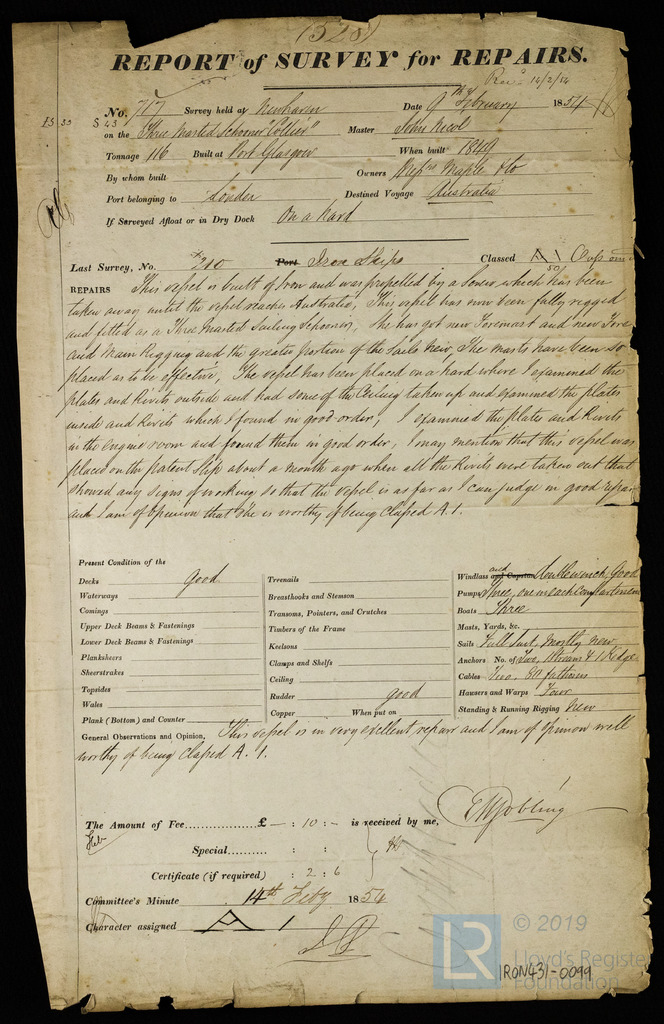 (528)
REPORT of SURVEY for REPAIRS.
Rec. 14/2/54
No. 717 Survey held at Newhaven Date 9th February 1854
on the Three Masted Schooner "Collier" Master John Nicol
Tonnage 116 Built at Port Glasgow When built 1849
By whom built Owners Messrs Maple &Co
Port belonging to London Destined Voyage Australia
If Surveyed Afloat or in Dry Dock On a hard
Last Survey, No. 210 Port Iron Ships Classed A1
REPAIRS This vessel is built of Iron and was propelled by a Screw which has been
taken away until the vessel reaches Australia, This vessel has now been fully rigged
and fitted as a Three Masted Sailing Schooner, She has got new Foremast and new Fore
and Main Rigging and the greater portion of the Sails New, The masts have been so
placed as to be effective, The vessel has been placed on a hard where I examined the
plates and Rivits outside and had some of the Ceiling taken up and examined the plates
inside and Rivits which I found in good order, I examined the plates and Rivits
in the engine room and found them in good order, I may mention that this vessel was
placed on the patent slip about a month ago when all the Rivits were taken out that
showed any signs of working so that the vessel is as far as I can judge in good repair
and I am of Opinion that she is worthy of being classed A.1.
Present Condition of the
Decks good
Waterways
Comings
Upper Deck Beams & Fastenings
Lower Deck Beams & Fastenings
Planksheers
Sheerstrakes
Topsides
Wales
Plank (Bottom) and Counter
Treenails
Breasthooks and Stemson
Transoms, Pointers, and Crutches
Timbers of the Frame
Keelsons
Clamps and Shelfs
Ceiling
Rudder good
Copper When put on
Windlass and Capstan and good
Pumps Three, one in each compartment
Boats Three
Masts, Yards, &c.
Sails Full Suit, Mostly New
Anchors No. of Two, 1 Stream & 1 Kedge
Cables Two, 80 fathoms
Hawsers and Warps Four
Standing & Running Rigging New
General Observations and Opinion, This vessel is in very excellent repair and I am of opinion well
worthy of being classed A. 1.
The Amount of Fee £ — : 10 : — is received by me,
Special : :
Certificate (if required) : 2 : 6
Committee's Minute 14th Feby 1854
Character assigned A 1
LR
© 2019
Lloyd's Register
Foundation
IRON431-0099